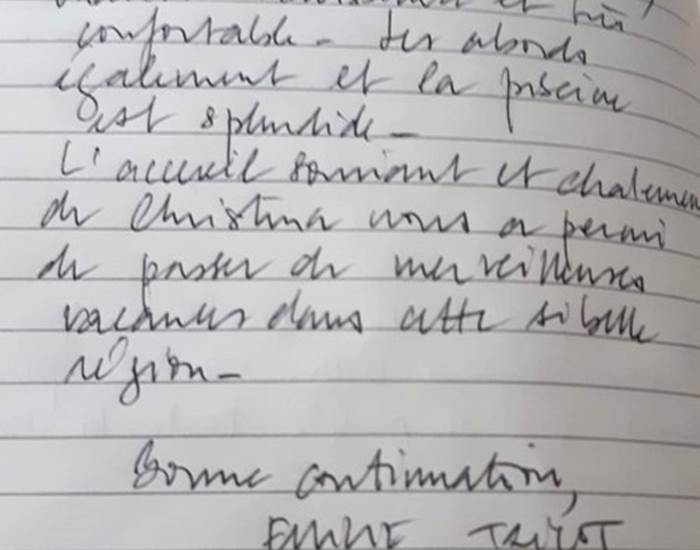 et très
confortable - Les abords
également et la piscine
est splendide -
L'accueil souriant et chaleureux
de Christina nous a permi
de passer de merveilleuses
vacances dans cette si belle
région -
Bonne continuation,